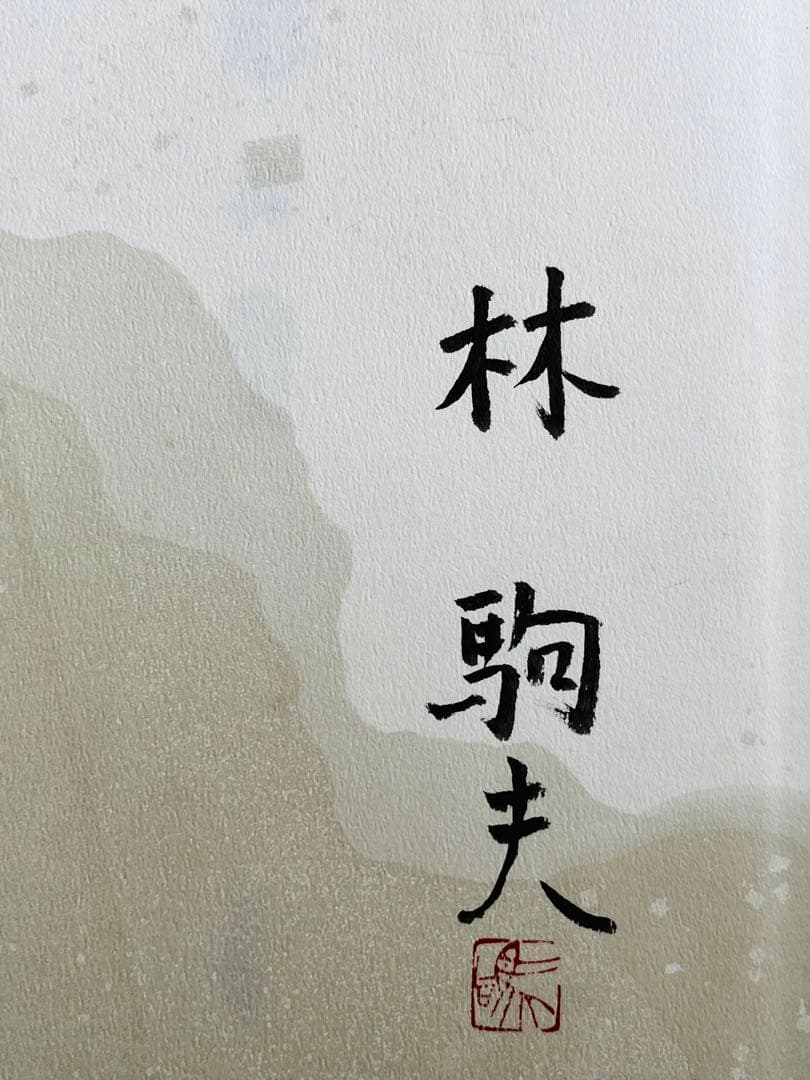 林駒夫